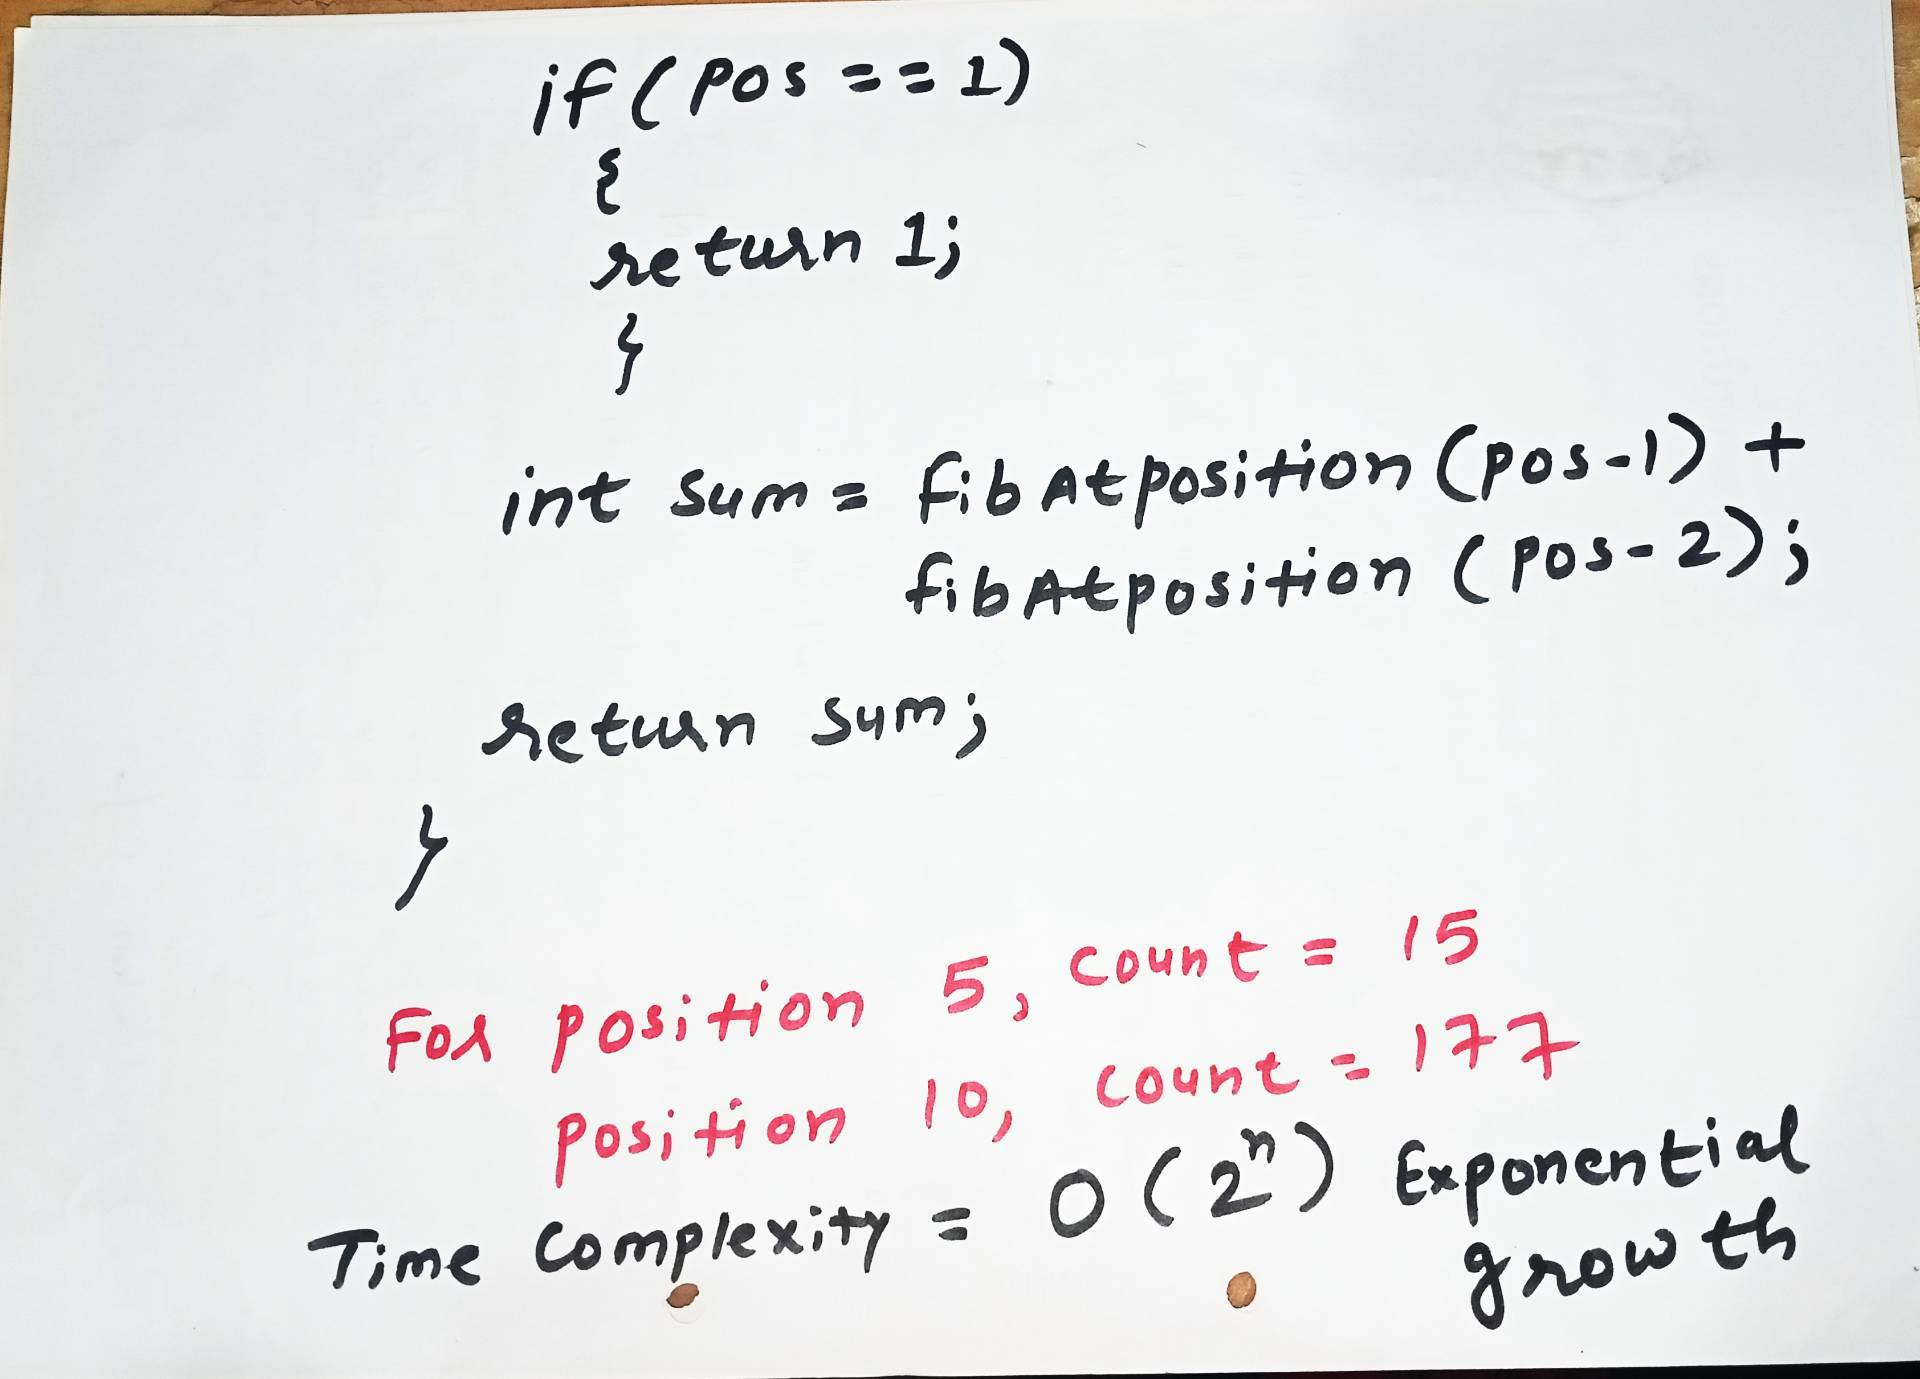 if (pos == 1)
{
return 1;
}
int sum = fibAtposition (pos-1) +
fibAtposition (pos-2);
return sum;
}
For position 5, count = 15
position 10, count = 177
Time complexity = O(2ⁿ) Exponential
growth